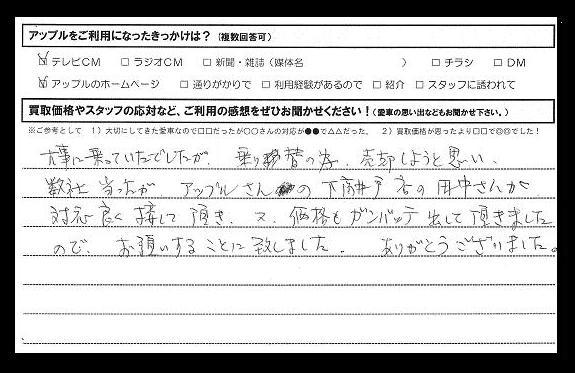 アップルをご利用になったきっかけは？（複数回答可）
☑ テレビCM □ ラジオCM □ 新聞・雑誌（媒体名 ） □ チラシ □ DM
☑ アップルのホームページ □ 通りがかりで □ 利用経験があるので □ 紹介 □ スタッフに誘われて
買取価格やスタッフの応対など、ご利用の感想をぜひお聞かせください！（愛車の思い出などもお聞かせ下さい。）
※ご参考として 1）大切にしてきた愛車なので□□だったが○○さんの対応が●●で△△だった。 2）買取価格が思ったより□□で◎◎でした！
大事に乗っていたでしたが、乗り替の為、売却しようと思い、
数社当ったが アップルさんの下高井戸店の田中さんが
対応良く接して頂き、又、価格もガンバッテ出して頂きました
ので、お願いすることに致しました。ありがとうございました。